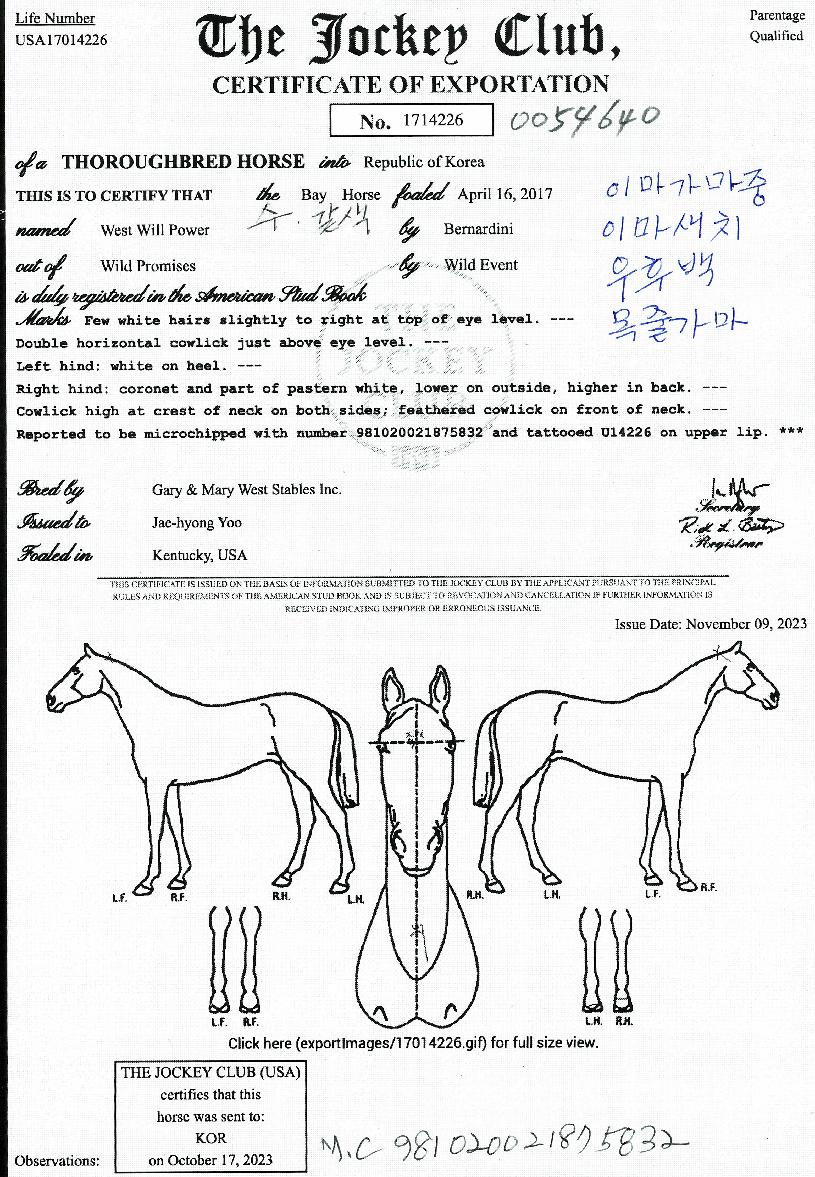 Life Number
USA17014226
The Jockey Club,
Parentage
Qualified
CERTIFICATE OF EXPORTATION
No. 1714226
0054640
of a THOROUGHBRED HORSE into Republic of Korea
THIS IS TO CERTIFY THAT the Bay Horse foaled April 16, 2017
이마가마중
수. 갈색
named West Will Power by Bernardini
이마새치
out of Wild Promises by Wild Event
우후백
is duly registered in the American Stud Book
목줄가마
Marks Few white hairs slightly to right at top of eye level. ---
Double horizontal cowlick just above eye level. ---
Left hind: white on heel. ---
Right hind: coronet and part of pastern white, lower on outside, higher in back. ---
Cowlick high at crest of neck on both sides; feathered cowlick on front of neck. ---
Reported to be microchipped with number 981020021875832 and tattooed U14226 on upper lip. ***
THE
JOCKEY
CLUB
Bred by Gary & Mary West Stables Inc.
Issued to Jae-hyong Yoo
Foaled in Kentucky, USA
Secretary
Registrar
THIS CERTIFICATE IS ISSUED ON THE BASIS OF INFORMATION SUBMITTED TO THE JOCKEY CLUB BY THE APPLICANT PURSUANT TO THE PRINCIPAL
RULES AND REQUIREMENTS OF THE AMERICAN STUD BOOK AND IS SUBJECT TO REVOCATION AND CANCELLATION IF FURTHER INFORMATION IS
RECEIVED INDICATING IMPROPER OR ERRONEOUS ISSUANCE.
Issue Date: November 09, 2023
L.F. R.F. R.H. L.H. R.H. L.H. L.F. R.F.
L.F. R.F. L.H. R.H.
Click here (exportImages/17014226.gif) for full size view.
THE JOCKEY CLUB (USA)
certifies that this
horse was sent to:
KOR
on October 17, 2023
Observations:
M.C 981020021875832